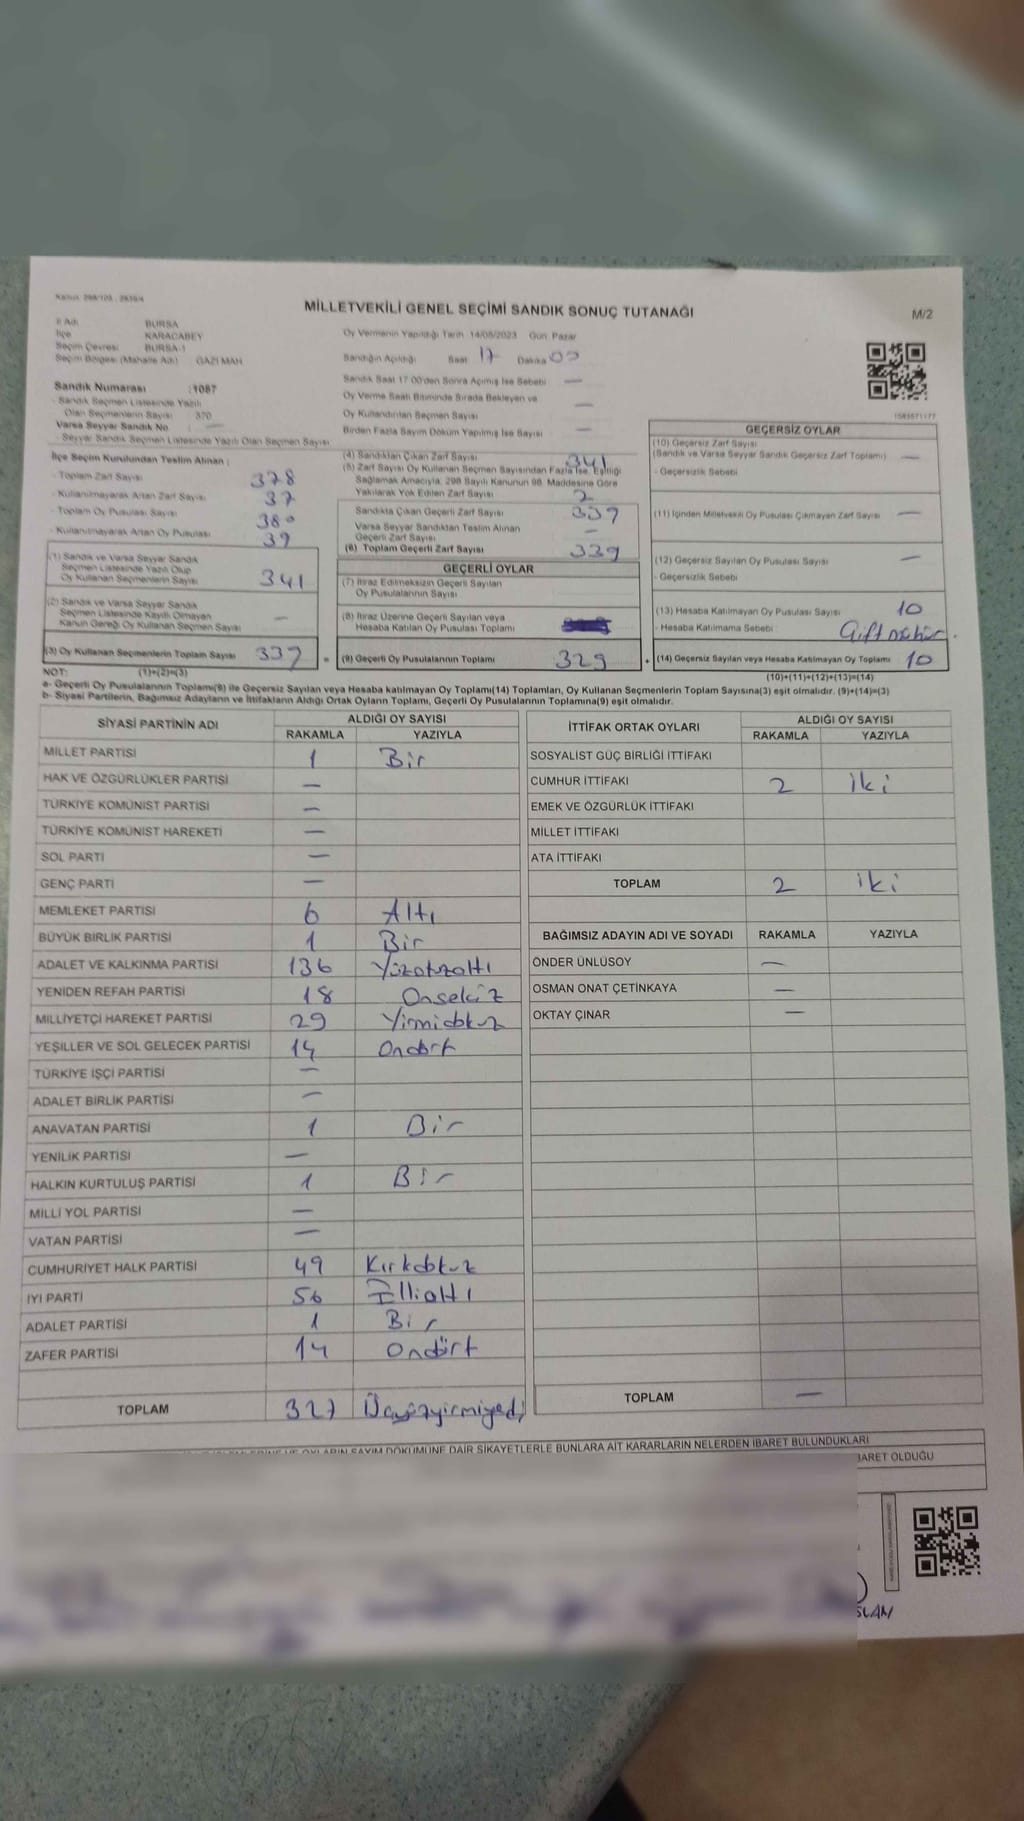 Kanun: 298/105 , 2839/4
MİLLETVEKİLİ GENEL SEÇİMİ SANDIK SONUÇ TUTANAĞI
M/2
İl Adı BURSA
İlçe KARACABEY
Seçim Çevresi BURSA-1
Seçim Bölgesi (Mahalle Adı) GAZİ MAH
Oy Vermenin Yapıldığı Tarih 14/05/2023 Gün Pazar
Sandığın Açıldığı Saat 17 Dakika 00
Sandık Saat 17.00'den Sonra Açılmış İse Sebebi —
Oy Verme Saati Bitiminde Sırada Bekleyen ve
Oy Kullandırılan Seçmen Sayısı —
Birden Fazla Sayım Döküm Yapılmış İse Sayısı —
Sandık Numarası :1087
- Sandık Seçmen Listesinde Yazılı
Olan Seçmenlerin Sayısı 370
Varsa Seyyar Sandık No —
- Seyyar Sandık Seçmen Listesinde Yazılı Olan Seçmen Sayısı
İlçe Seçim Kurulundan Teslim Alınan :
- Toplam Zarf Sayısı 378
- Kullanılmayarak Artan Zarf Sayısı 37
- Toplam Oy Pusulası Sayısı 380
- Kullanılmayarak Artan Oy Pusulası 39
(1) Sandık ve Varsa Seyyar Sandık
Seçmen Listesinde Yazılı Olup
Oy Kullanan Seçmenlerin Sayısı 341
(2) Sandık ve Varsa Seyyar Sandık
Seçmen Listesinde Kayıtlı Olmayan
Kanun Gereği Oy Kullanan Seçmen Sayısı —
(3) Oy Kullanan Seçmenlerin Toplam Sayısı 339 =
(4) Sandıktan Çıkan Zarf Sayısı 341
(5) Zarf Sayısı Oy Kullanan Seçmen Sayısından Fazla İse, Eşitliği
Sağlamak Amacıyla, 298 Sayılı Kanunun 98. Maddesine Göre
Yakılarak Yok Edilen Zarf Sayısı 2
Sandıkta Çıkan Geçerli Zarf Sayısı 339
Varsa Seyyar Sandıktan Teslim Alınan
Geçerli Zarf Sayısı —
(6) Toplam Geçerli Zarf Sayısı 339
GEÇERLİ OYLAR
(7) İtiraz Edilmeksizin Geçerli Sayılan
Oy Pusulalarının Sayısı
(8) İtiraz Üzerine Geçerli Sayılan veya
Hesaba Katılan Oy Pusulası Toplamı
(9) Geçerli Oy Pusulalarının Toplamı 329 +
1585571177
GEÇERSİZ OYLAR
(10) Geçersiz Zarf Sayısı
(Sandık ve Varsa Seyyar Sandık Geçersiz Zarf Toplamı) —
- Geçersizlik Sebebi
(11) İçinden Milletvekili Oy Pusulası Çıkmayan Zarf Sayısı —
(12) Geçersiz Sayılan Oy Pusulası Sayısı —
- Geçersizlik Sebebi
(13) Hesaba Katılmayan Oy Pusulası Sayısı 10
- Hesaba Katılmama Sebebi : Çift mühür.
(14) Geçersiz Sayılan veya Hesaba Katılmayan Oy Toplamı 10
NOT: (1)+(2)=(3)
(10)+(11)+(12)+(13)=(14)
a- Geçerli Oy Pusulalarının Toplamı(9) ile Geçersiz Sayılan veya Hesaba katılmayan Oy Toplamı(14) Toplamları, Oy Kullanan Seçmenlerin Toplam Sayısına(3) eşit olmalıdır. (9)+(14)=(3)
b- Siyasi Partilerin, Bağımsız Adayların ve İttifakların Aldığı Ortak Oyların Toplamı, Geçerli Oy Pusulalarının Toplamına(9) eşit olmalıdır.
SİYASİ PARTİNİN ADI ALDIĞI OY SAYISI
RAKAMLA YAZIYLA
MİLLET PARTİSİ 1 Bir
HAK VE ÖZGÜRLÜKLER PARTİSİ —
TÜRKİYE KOMÜNİST PARTİSİ —
TÜRKİYE KOMÜNİST HAREKETİ —
SOL PARTİ —
GENÇ PARTİ —
MEMLEKET PARTİSİ 6 Altı
BÜYÜK BİRLİK PARTİSİ 1 Bir
ADALET VE KALKINMA PARTİSİ 136 Yüzotuzaltı
YENİDEN REFAH PARTİSİ 18 Onsekiz
MİLLİYETÇİ HAREKET PARTİSİ 29 Yirmidokuz
YEŞİLLER VE SOL GELECEK PARTİSİ 14 Ondört
TÜRKİYE İŞÇİ PARTİSİ —
ADALET BİRLİK PARTİSİ —
ANAVATAN PARTİSİ 1 Bir
YENİLİK PARTİSİ —
HALKIN KURTULUŞ PARTİSİ 1 Bir
MİLLİ YOL PARTİSİ —
VATAN PARTİSİ —
CUMHURİYET HALK PARTİSİ 49 Kırkdokuz
İYİ PARTİ 56 Ellialtı
ADALET PARTİSİ 1 Bir
ZAFER PARTİSİ 14 Ondört
TOPLAM 327 Üçyüzyirmiyedi
İTTİFAK ORTAK OYLARI ALDIĞI OY SAYISI
RAKAMLA YAZIYLA
SOSYALİST GÜÇ BİRLİĞİ İTTİFAKI
CUMHUR İTTİFAKI 2 İki
EMEK VE ÖZGÜRLÜK İTTİFAKI
MİLLET İTTİFAKI
ATA İTTİFAKI
TOPLAM 2 İki
BAĞIMSIZ ADAYIN ADI VE SOYADI RAKAMLA YAZIYLA
ÖNDER ÜNLÜSOY —
OSMAN ONAT ÇETİNKAYA —
OKTAY ÇINAR —
TOPLAM —
OYLARIN SAYIM DÖKÜMÜNE DAİR ŞİKAYETLERLE BUNLARA AİT KARARLARIN NELERDEN İBARET BULUNDUKLARI
BARET OLDUĞU
SLAN